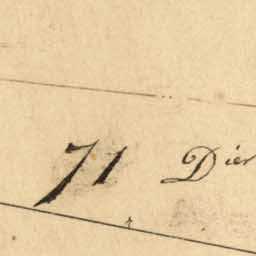 71 Dier